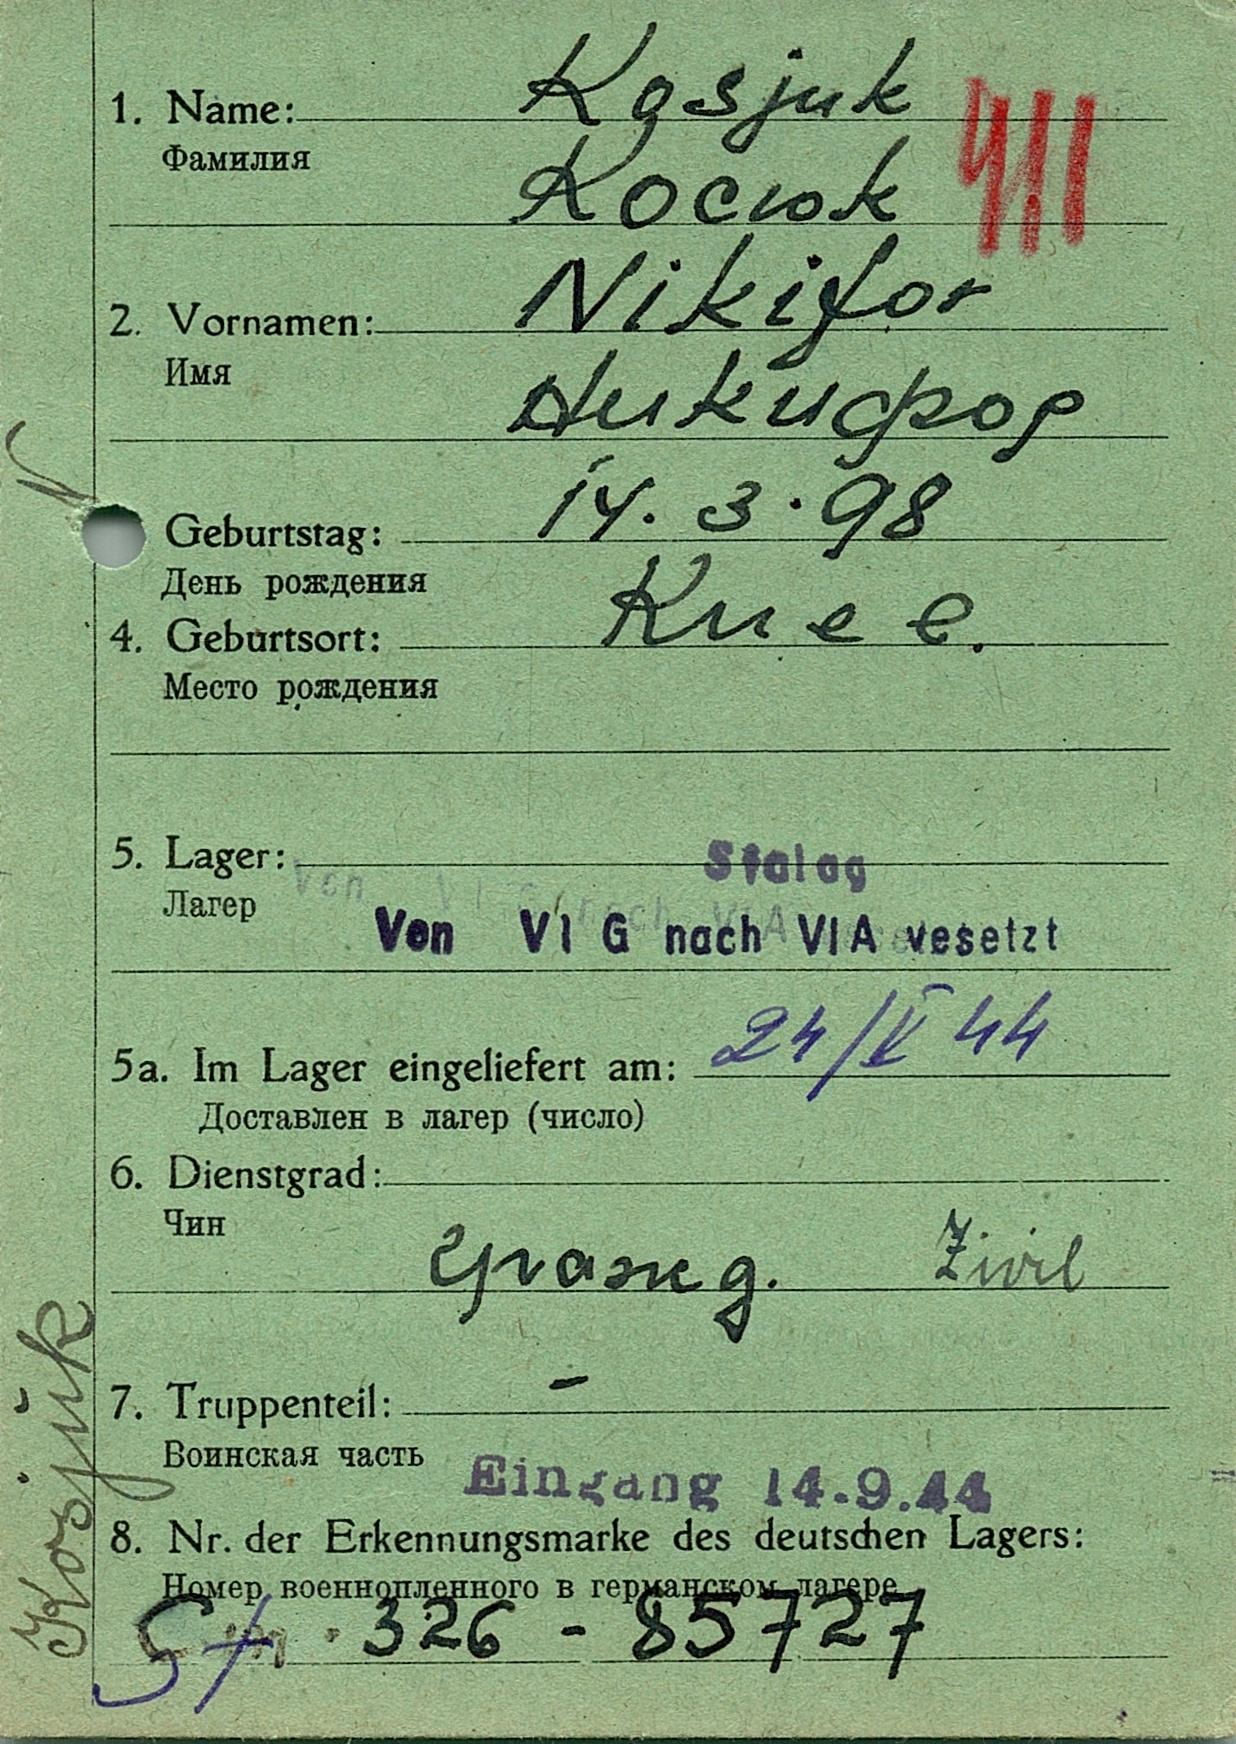 1. Name: Kosjuk
Фамилия
Косюк
411
2. Vornamen: Nikifor
Имя
Никифор
N
Geburtstag: 14.3.98
День рождения
4. Geburtsort: Киев.
Место рождения
5. Lager: Stalag
Лагер
Von VI G nach VI A vesetzt
Von VI G nach VI A vesetzt
5a. Im Lager eingeliefert am: 24/V 44
Доставлен в лагер (число)
6. Dienstgrad:
Чин
гражд. Zivil
7. Truppenteil: -
Воинская часть
Eingang 14.9.44
8. Nr. der Erkennungsmarke des deutschen Lagers:
Номер военнопленного в германском лагере
St. 326 - 85727
Kosjuk